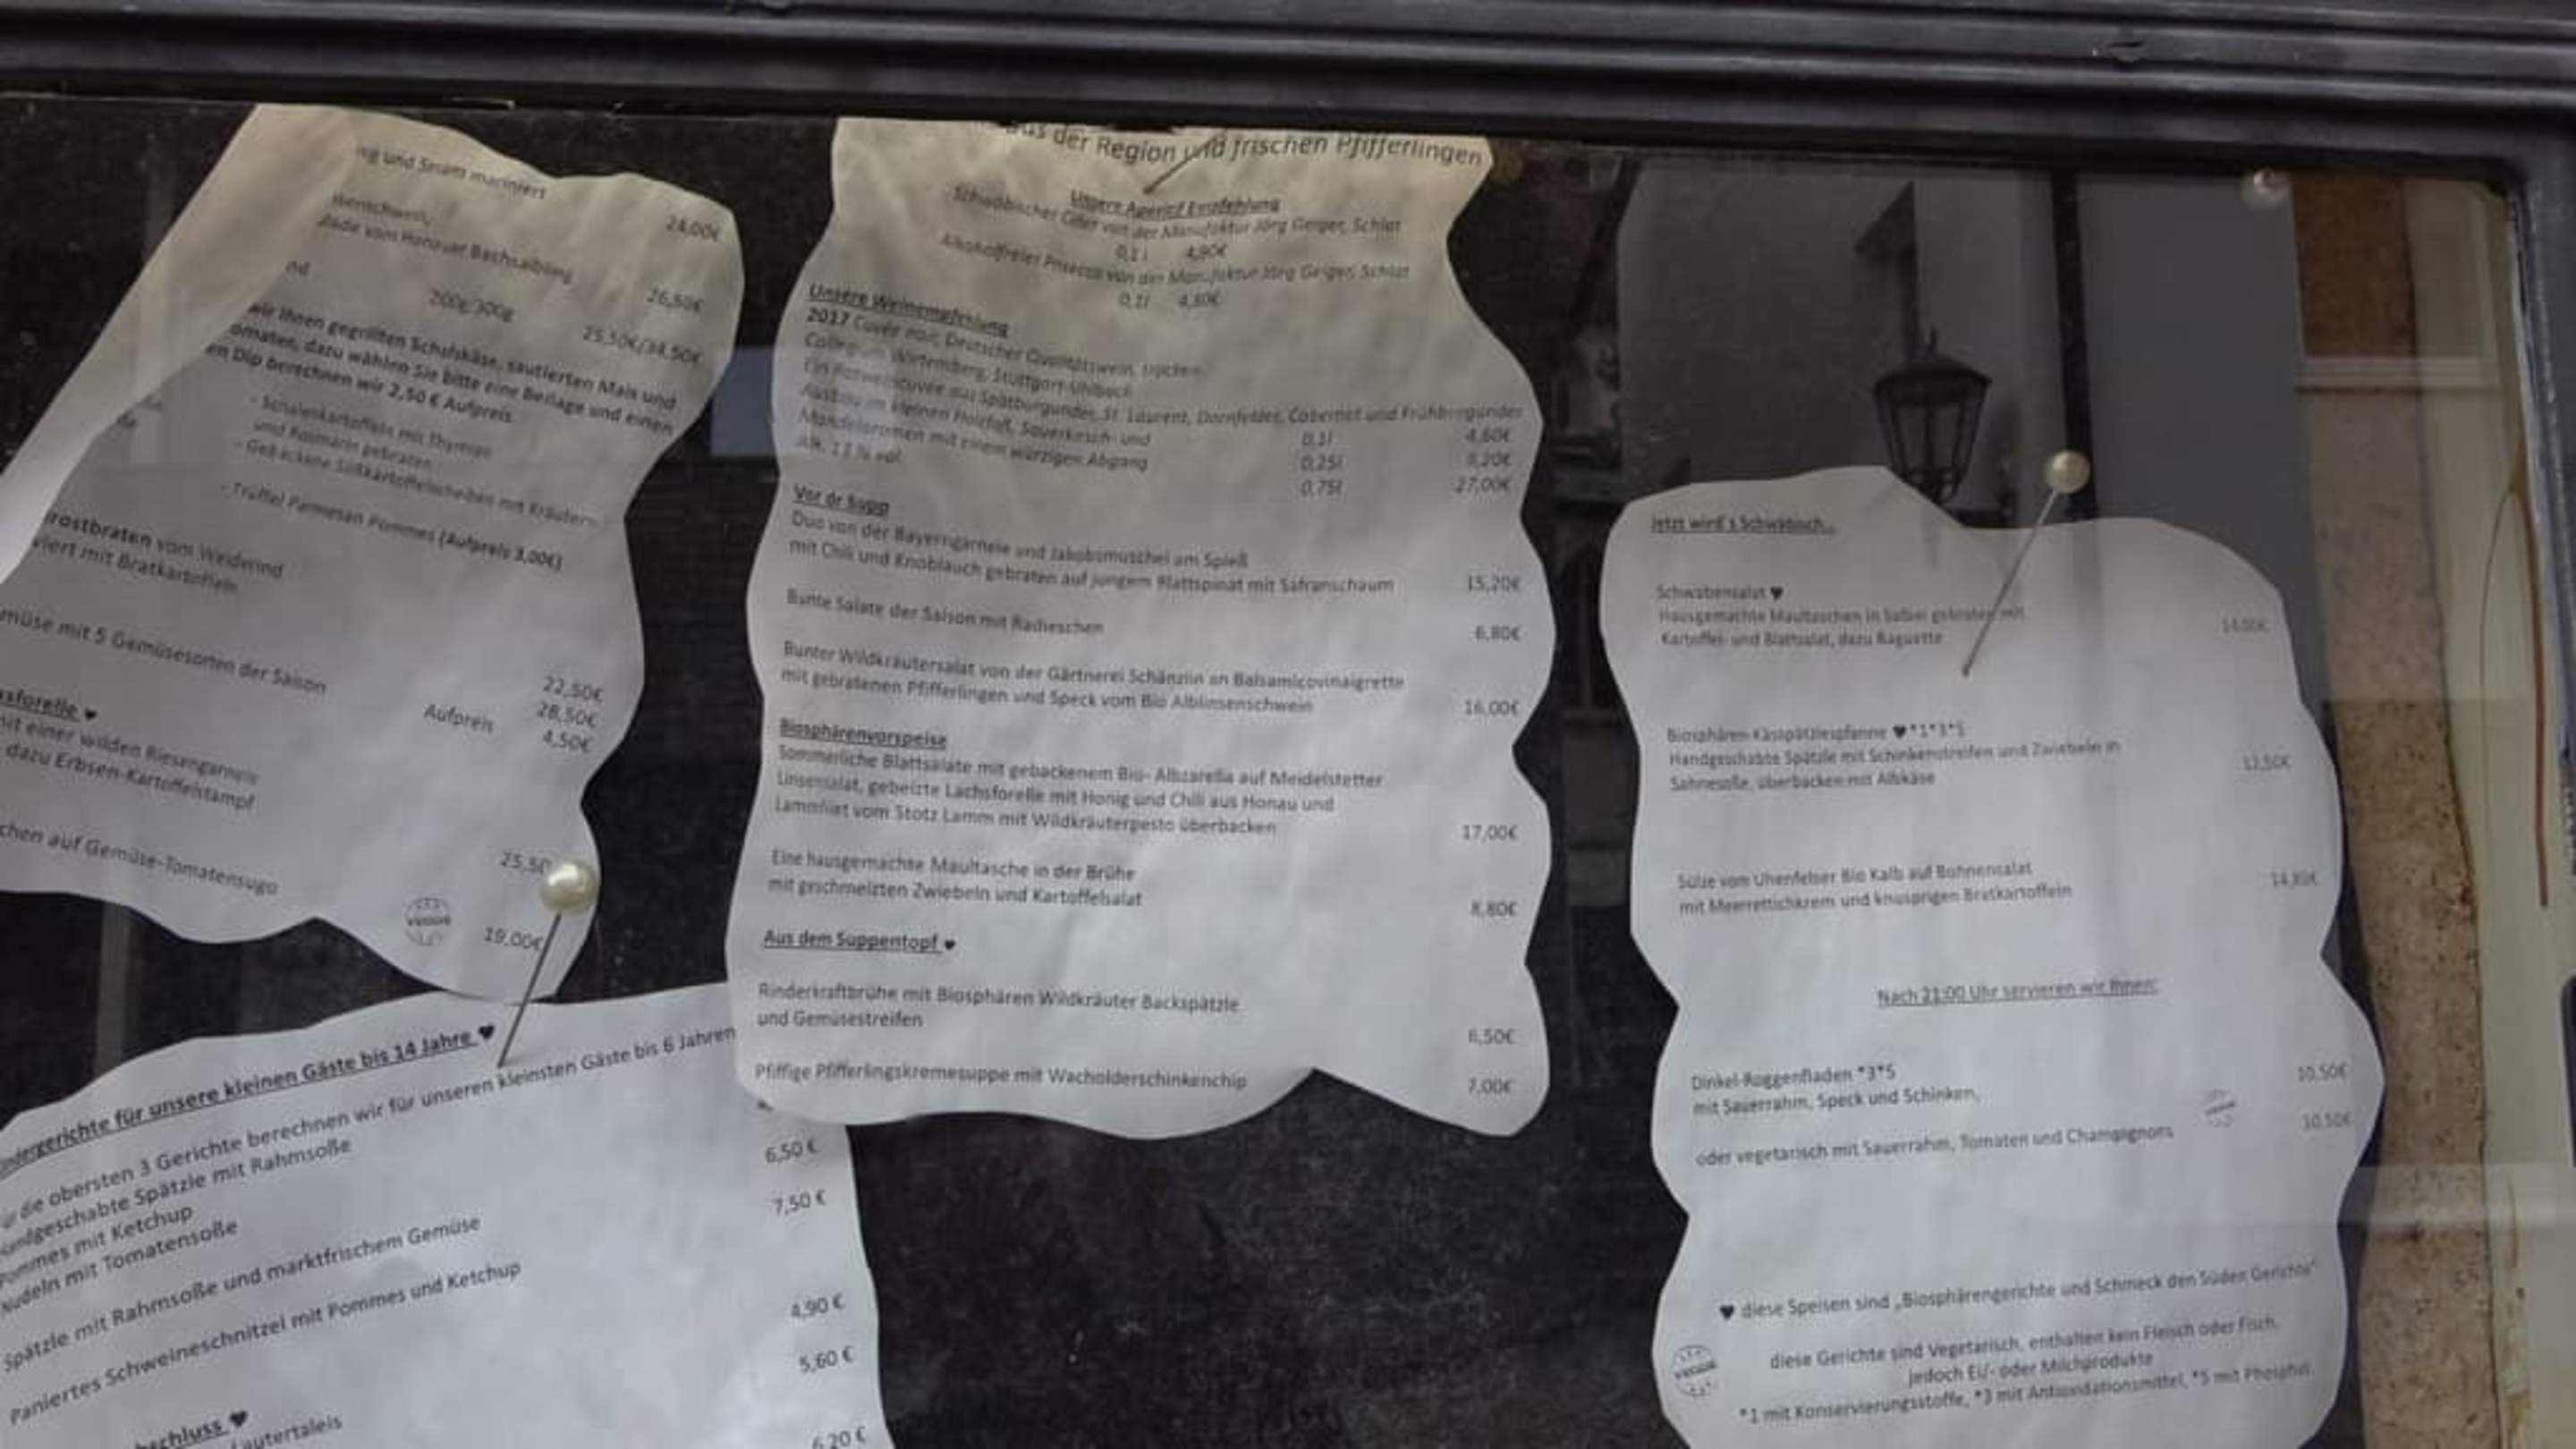 und Sesam mariniert
24,00€
vom Honauer Bachsaibling
26,50€
nd
200g/300g
25,50€/34,50€
wir Ihnen gegrillten Schafskäse, sautierten Mais und
omaten, dazu wählen Sie bitte eine Beilage und einen
en Dip berechnen wir 2,50 € Aufpreis.
- Schalenkartoffeln mit Thymian
und Rosmarin gebraten
- Gebackene Süßkartoffelscheiben mit Kräutern
- Trüffel Parmesan Pommes (Aufpreis 3,00€)
rostbraten vom Weiderind
viert mit Bratkartoffeln
müse mit 5 Gemüsesorten der Saison
22,50€
28,50€
Aufpreis 4,50€
sforelle ♥
mit einer wilden Riesengarnele
dazu Erbsen-Kartoffelstampf
25,50
chen auf Gemüse-Tomatensugo
VEGGIE
19,00€
ndergerichte für unsere kleinen Gäste bis 14 Jahre ♥
die obersten 3 Gerichte berechnen wir für unseren kleinsten Gäste bis 6 Jahren
andgeschabte Spätzle mit Rahmsoße
Pommes mit Ketchup
Nudeln mit Tomatensoße
Spätzle mit Rahmsoße und marktfrischem Gemüse
Paniertes Schweineschnitzel mit Pommes und Ketchup
6,50 €
7,50 €
4,90 €
5,60 €
6,20 €
schluss ♥
autertaleis
aus der Region und frischen Pfifferlingen
Unsere Aperitif Empfehlung
Schwäbischer Cider von der Manufaktur Jörg Geiger, Schlat
0,1 l 4,90€
Alkoholfreier Prisecco von der Manufaktur Jörg Geiger, Schlat
0,1l 4,80€
Unsere Weinempfehlung
2017 Cuvée noir, Deutscher Qualitätswein, trocken
Collegium Wirtemberg, Stuttgart-Uhlbach
Ein Rotweincuvée aus Spätburgunder, St. Laurent, Dornfelder, Cabernet und Frühburgunder
Ausbau im kleinen Holzfaß, Sauerkirsch- und
0,1l 4,60€
Mandelaromen mit einem würzigen Abgang
0,25l 9,20€
Alk. 13 % vol.
0,75l 27,00€
Vor dr Supp
Duo von der Bayerngarnele und Jakobsmuschel am Spieß
mit Chili und Knoblauch gebraten auf jungem Blattspinat mit Safranschaum 15,20€
Bunte Salate der Saison mit Radieschen 6,80€
Bunter Wildkräutersalat von der Gärtnerei Schänzlin an Balsamicovinaigrette
mit gebratenen Pfifferlingen und Speck vom Bio Alblinsenschwein 16,00€
Biosphärenvorspeise
Sommerliche Blattsalate mit gebackenem Bio- Albzarella auf Meidelstetter
Linsensalat, gebeizte Lachsforelle mit Honig und Chili aus Honau und
Lammfilet vom Stotz Lamm mit Wildkräuterpesto überbacken 17,00€
Eine hausgemachte Maultasche in der Brühe
mit geschmelzten Zwiebeln und Kartoffelsalat 8,80€
Aus dem Suppentopf ♥
Rinderkraftbrühe mit Biosphären Wildkräuter Backspätzle
und Gemüsestreifen 6,50€
Pfiffige Pfifferlingskremesuppe mit Wacholderschinkenchip 7,00€
Jetzt wird's Schwäbisch...
Schwabensalat ♥
Hausgemachte Maultaschen in Salbei gebraten mit
Kartoffel- und Blattsalat, dazu Baguette
Biosphären-Kässpätzlespfanne ♥*1*3*5
Handgeschabte Spätzle mit Schinkenstreifen und Zwiebeln in
Sahnesoße, überbacken mit Albkäse 12,50€
Sülze vom Uhenfelser Bio Kalb auf Bohnensalat
mit Meerrettichkrem und knusprigen Bratkartoffeln 14,80€
Nach 21:00 Uhr servieren wir Ihnen:
Dinkel-Roggenfladen *3*5
mit Sauerrahm, Speck und Schinken, 10,50€
oder vegetarisch mit Sauerrahm, Tomaten und Champignons 10,50€
♥ diese Speisen sind „Biosphärengerichte und Schmeck den Süden Gerichte"
VEGGIE
diese Gerichte sind Vegetarisch, enthalten kein Fleisch oder Fisch,
jedoch Ei/- oder Milchprodukte
*1 mit Konservierungsstoffe, *3 mit Antioxidationsmittel, *5 mit Phosphat